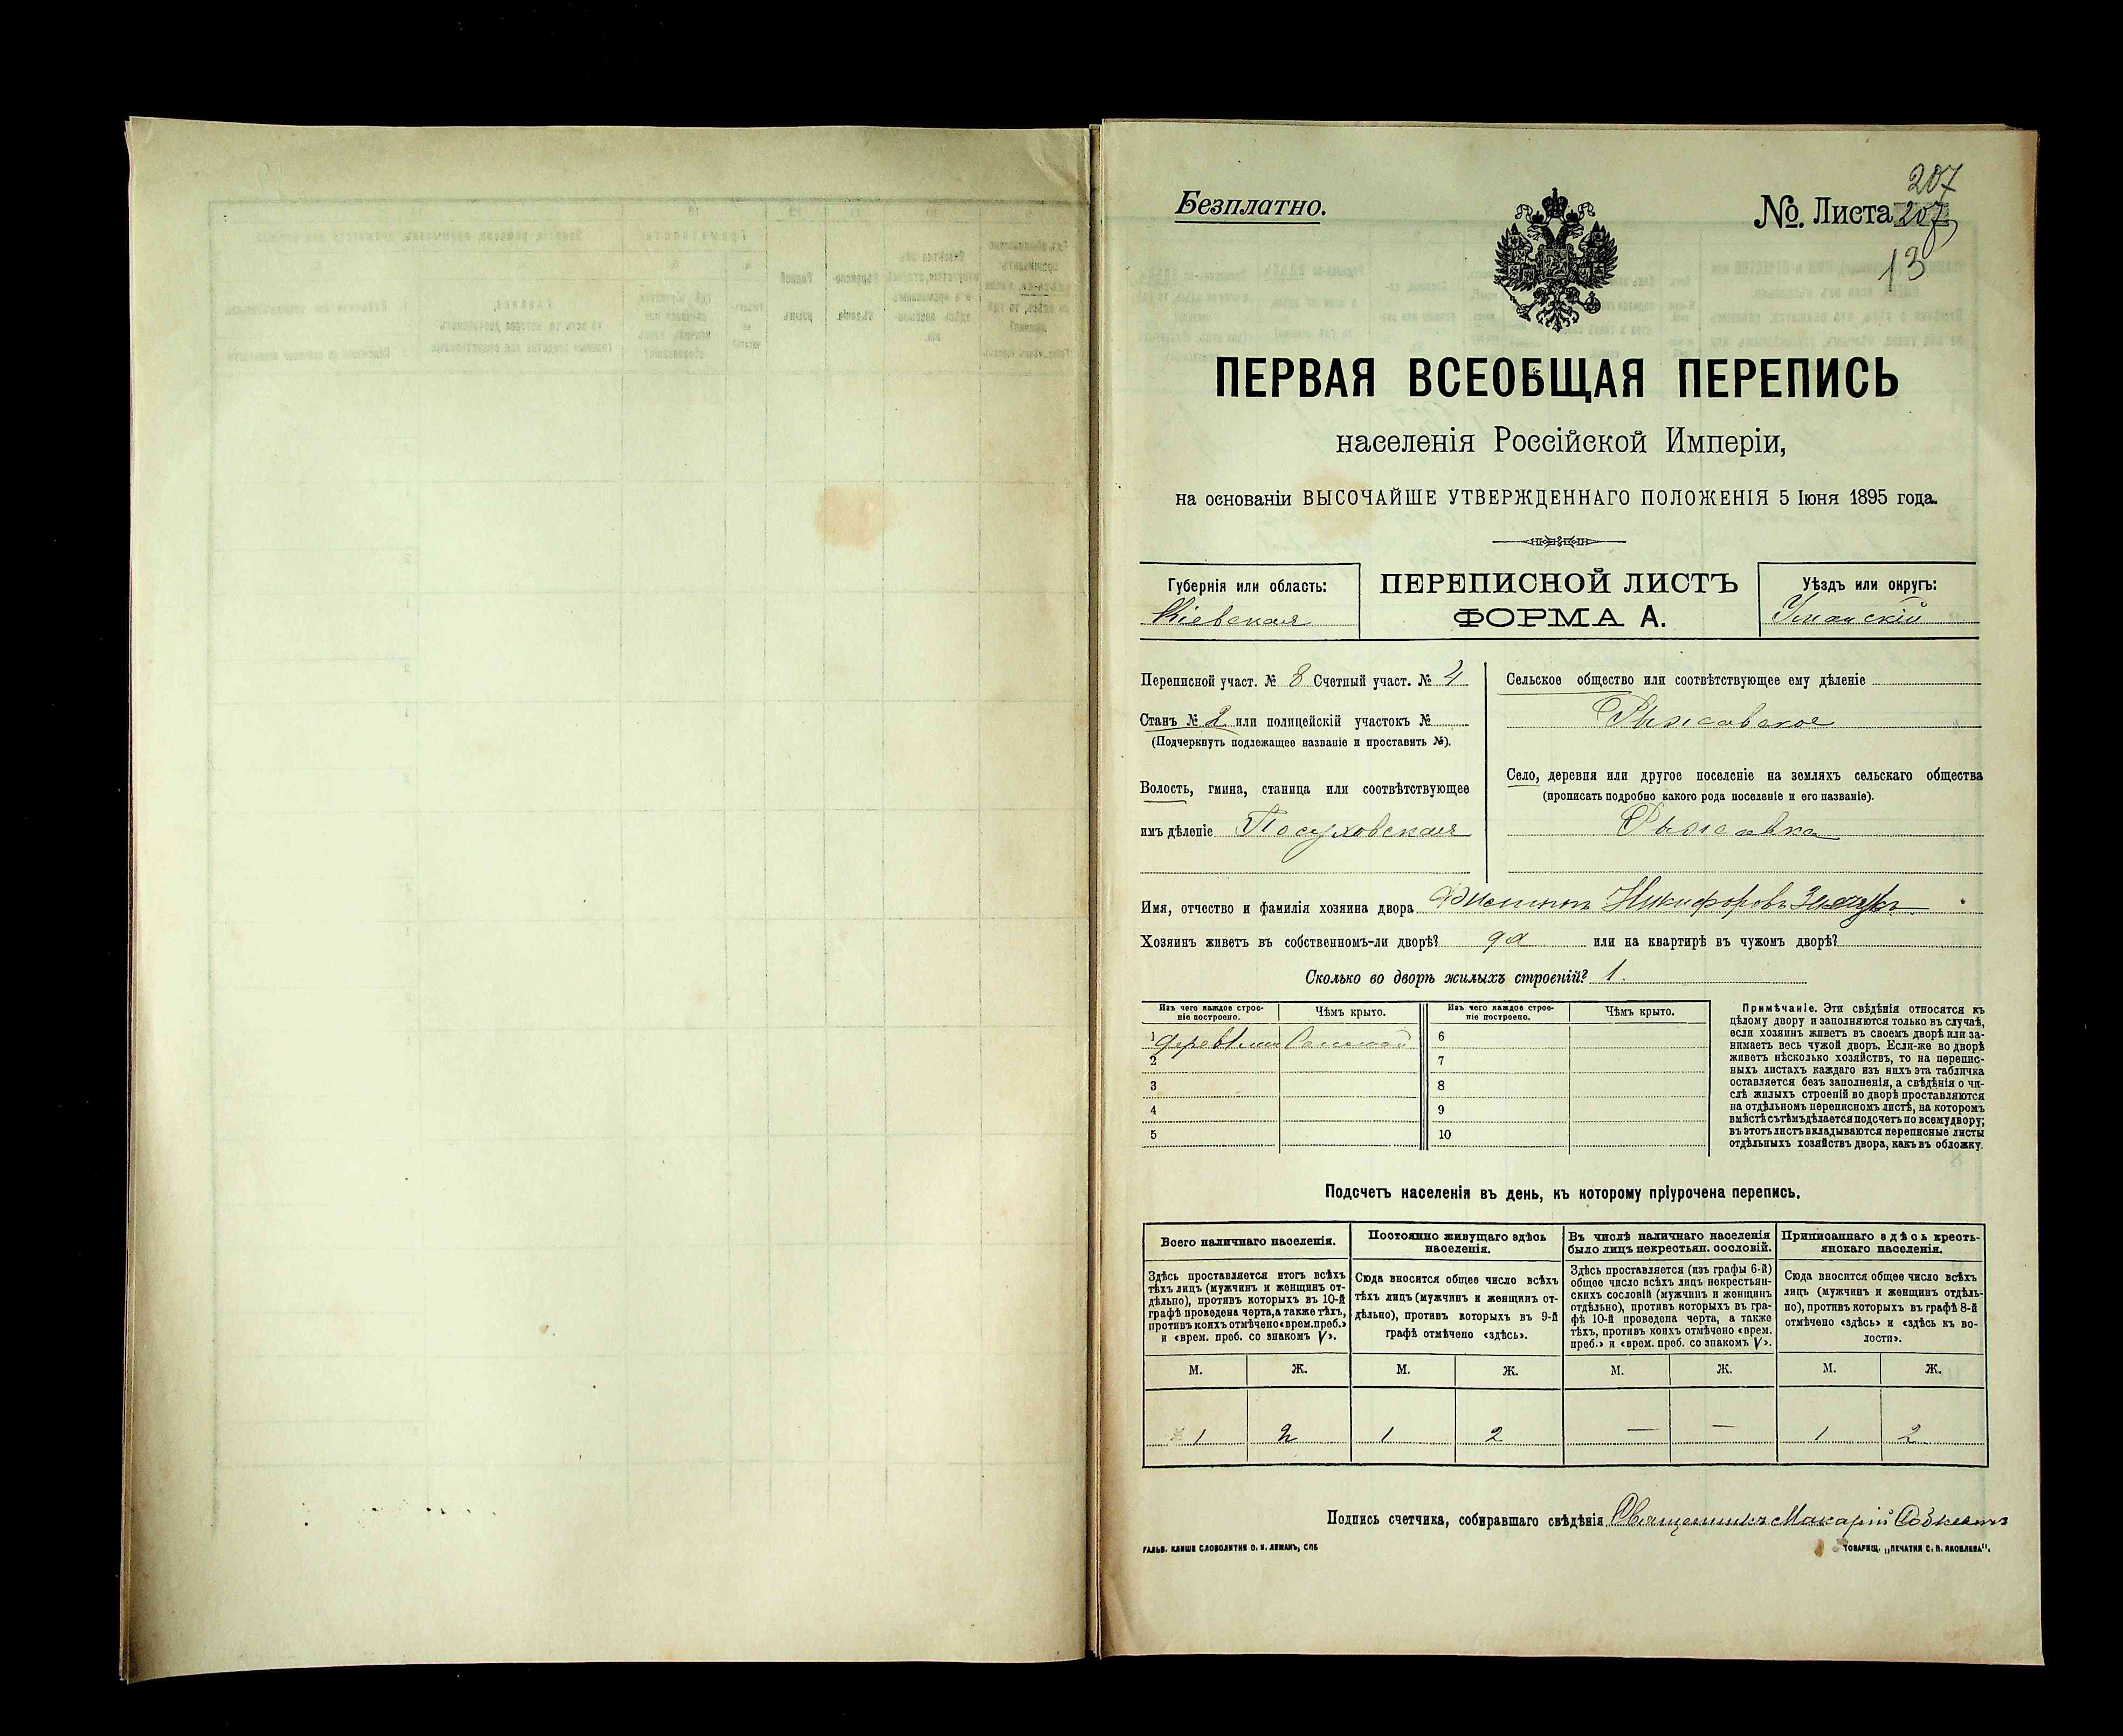 Безплатно.
№ Листа 207
207
13
ПЕРВАЯ ВСЕОБЩАЯ ПЕРЕПИСЬ
населенія Россійской Имперіи,
на основаніи ВЫСОЧАЙШЕ УТВЕРЖДЕННАГО ПОЛОЖЕНІЯ 5 Іюня 1895 года.
Губернія или область:
Кіевская
ПЕРЕПИСНОЙ ЛИСТЪ
ФОРМА А.
Уѣздъ или округъ:
Уманскій
Переписной участ. № 8 Счетный участ. № 4
Станъ № 2 или полицейскій участокъ №
(Подчеркнуть подлежащее названіе и проставить №).
Волость, гмина, станица или соотвѣтствующее
имъ дѣленіе Посуховская
Сельское общество или соотвѣтствующее ему дѣленіе
Рыжавское
Село, деревня или другое поселеніе на земляхъ сельскаго общества
(прописать подробно какого рода поселеніе и его названіе).
Рыжавка
Имя, отчество и фамилія хозяина двора Никифоровъ
Хозяинъ живетъ въ собственномъ-ли дворѣ? да или на квартирѣ въ чужомъ дворѣ?
Сколько во дворѣ жилыхъ строеній? 1.
Изъ чего каждое строе-
ніе построено.
Чѣмъ крыто.
Изъ чего каждое строе-
ніе построено.
Чѣмъ крыто.
1 Соломой
2
3
4
5
6
7
8
9
10
Примѣчаніе. Эти свѣдѣнія относятся къ
цѣлому двору и заполняются только въ случаѣ,
если хозяинъ живетъ въ своемъ дворѣ или за-
нимаетъ весь чужой дворъ. Если-же во дворѣ
живетъ нѣсколько хозяйствъ, то на перепис-
ныхъ листахъ каждаго изъ нихъ эта табличка
оставляется безъ заполненія, а свѣдѣнія о чи-
слѣ жилыхъ строеній во дворѣ проставляются
на отдѣльномъ переписномъ листѣ, на которомъ
вмѣстѣ съ тѣмъ дѣлается подсчетъ по всему двору;
въ этотъ листъ вкладываются переписные листы
отдѣльныхъ хозяйствъ двора, какъ въ обложку.
Подсчетъ населенія въ день, къ которому пріурочена перепись.
Всего наличнаго населенія.
Здѣсь проставляется итогъ всѣхъ
тѣхъ лицъ (мужчинъ и женщинъ от-
дѣльно), противъ которыхъ въ 10-й
графѣ проведена черта, а также тѣхъ,
противъ коихъ отмѣчено «врем. преб.»
и «врем. преб. со знакомъ V».
Постоянно живущаго здѣсь
населенія.
Сюда вносится общее число всѣхъ
тѣхъ лицъ (мужчинъ и женщинъ от-
дѣльно), противъ которыхъ въ 9-й
графѣ отмѣчено «здѣсь».
Въ числѣ наличнаго населенія
было лицъ некрестьян. сословій.
Здѣсь проставляется (изъ графы 6-й)
общее число всѣхъ лицъ некрестьян-
скихъ сословій (мужчинъ и женщинъ
отдѣльно), противъ которыхъ въ гра-
фѣ 10-й проведена черта, а также
тѣхъ, противъ коихъ отмѣчено «врем.
преб.» и «врем. преб. со знакомъ V».
Приписаннаго здѣсь кресть-
янскаго населенія.
Сюда вносится общее число всѣхъ
лицъ (мужчинъ и женщинъ отдѣль-
но), противъ которыхъ въ графѣ 8-й
отмѣчено «здѣсь» и «здѣсь къ во-
лости».
М. Ж. М. Ж. М. Ж. М. Ж.
1 2 1 2 — — 1 2
Подпись счетчика, собиравшаго свѣдѣнія Священникъ Макарій
ГАЛЬВ. КЛИШЕ СЛОВОЛИТНИ О. И. ЛЕМАНЪ, СПБ
ТОВАРИЩ. „ПЕЧАТНЯ С. П. ЯКОВЛЕВА".